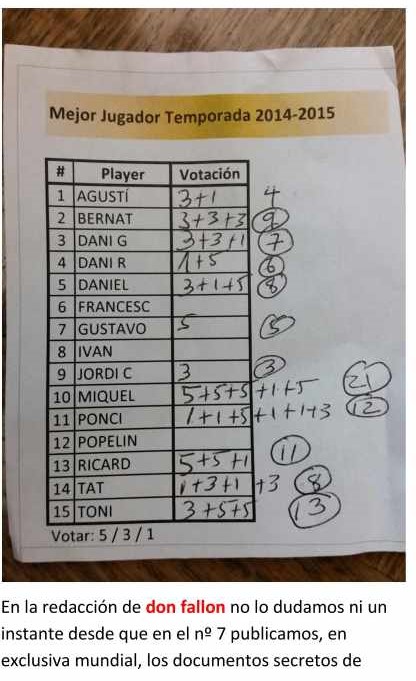 Mejor Jugador Temporada 2014-2015
# Player Votación
1 AGUSTÍ 3+1 4
2 BERNAT 3+3+3 9
3 DANI G 3+3+1 7
4 DANI R 1+5 6
5 DANIEL 3+1+5 8
6 FRANCESC
7 GUSTAVO 5 5
8 IVAN
9 JORDI C 3 3
10 MIQUEL 5+5+5+1+5 21
11 PONCI 1+1+5+1+1+3 12
12 POPELIN
13 RICARD 5+5+1 11
14 TAT 1+3+1+3 8
15 TONI 3+5+5 13
Votar: 5 / 3 / 1
En la redacción de don fallon no lo dudamos ni un
instante desde que en el nº 7 publicamos, en
exclusiva mundial, los documentos secretos de